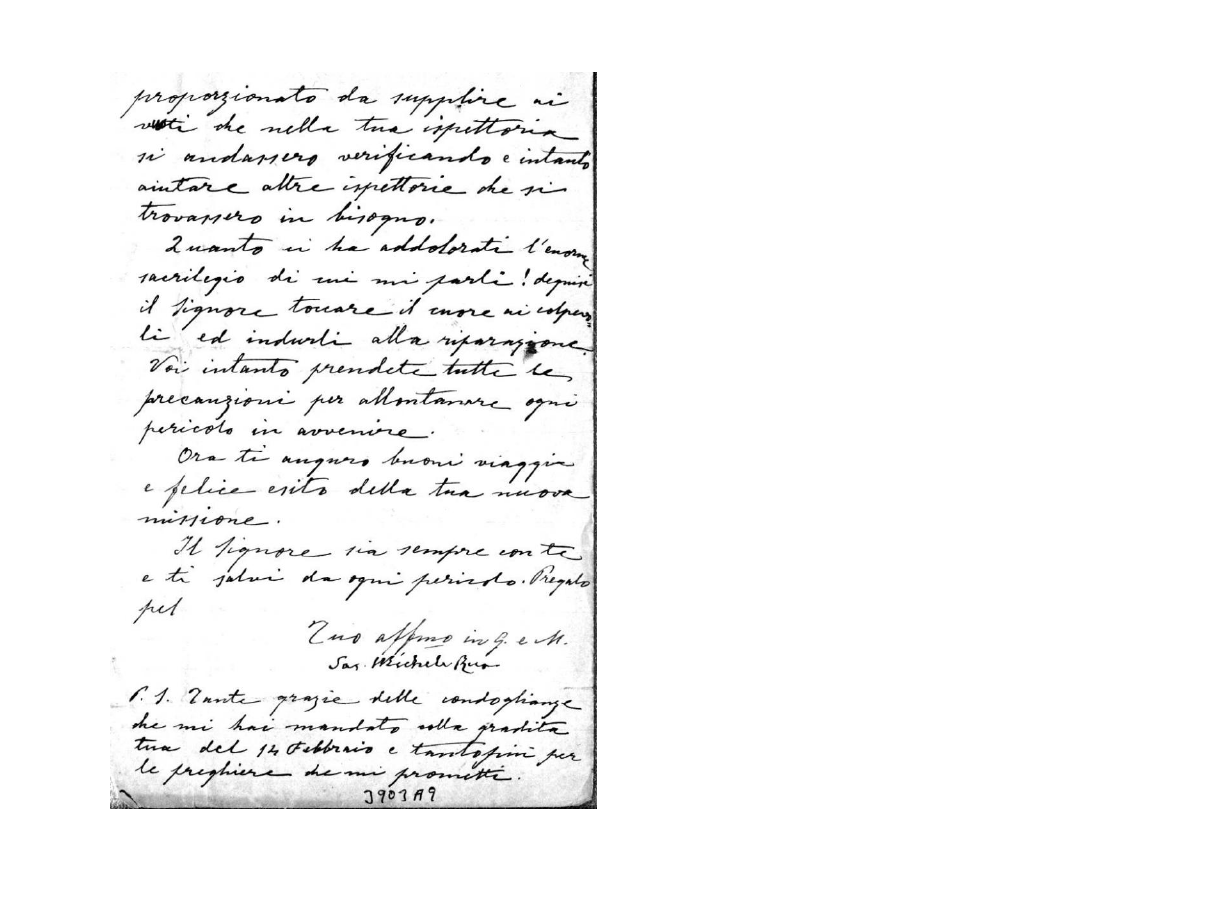 proporzionato da supplire ai
vuoti che nella tua ispettoria
si andassero verificando e intanto
aiutare altre ispettorie che si
trovassero in bisogno.
Quanto ci ha addolorati l'enorme
sacrilegio di cui mi parli! degnisi
il Signore toccare il cuore ai colpevo-
li ed indurli alla riparazione.
Voi intanto prendete tutte le
precauzioni per allontanare ogni
pericolo in avvenire.
Ora ti auguro buoni viaggi
e felice esito della tua nuova
missione.
Il Signore sia sempre con te
e ti salvi da ogni pericolo. Pregalo
pel
Tuo affmo in G. e M.
Sac. Michele Rua
P. S. Tante grazie delle condoglianze
che mi hai mandato colla gradita
tua del 14 Febbraio e tantopiù per
le preghiere che mi prometti.
3903A9